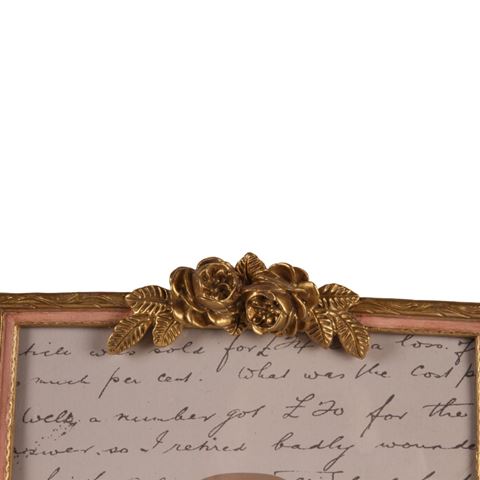 was sold for £ a loss. If
much per cent. What was the cost p
Well, a number got £20 for the
answer, so I retired badly wounde